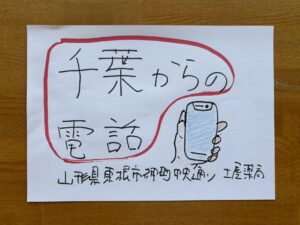 千葉からの
電話
山形県東根市神町中央通り 土屋薬局